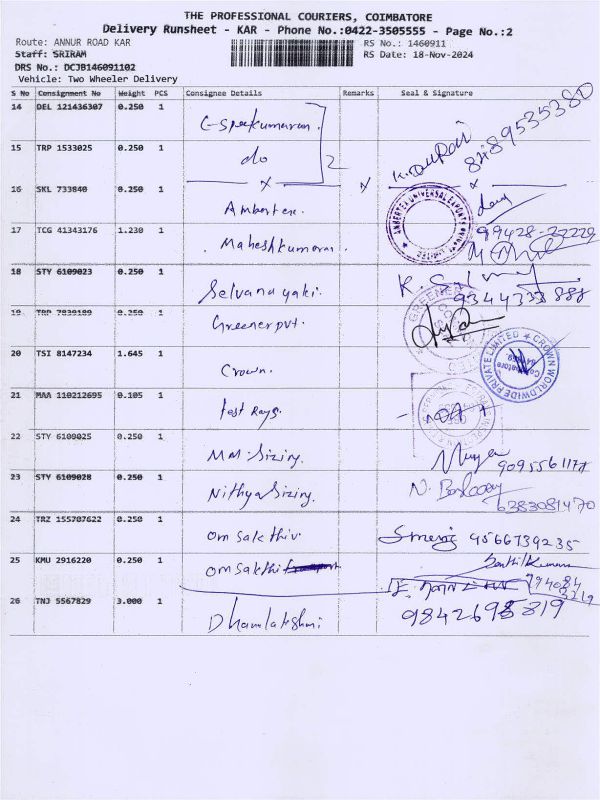 THE PROFESSIONAL COURIERS, COIMBATORE
Delivery Runsheet - KAR - Phone No.:0422-3505555 - Page No.:2
Route: ANNUR ROAD KAR RS No.: 1460911
Staff: SRIRAM RS Date: 18-Nov-2024
DRS No.: DCJB146091102
Vehicle: Two Wheeler Delivery
S No Consignment No Weight PCS Consignee Details Remarks Seal & Signature
14 DEL 121436307 0.250 1
15 TRP 1533025 0.250 1 do 2
16 SKL 733840 0.250 1
17 TCG 41343176 1.230 1 Maheshkumaran. 99428-22229
18 STY 6109023 0.250 1 Selvanayaki. 9344333888
19 TRP 7839189 0.250 1 Greenerpvt.
20 TSI 8147234 1.645 1 Crown. CROWN WORLDWIDE PRIVATE LIMITED
21 MAA 110212695 0.105 1 fast Rays.
22 STY 6109025 0.250 1 MM. Sizing. 9095561177
23 STY 6109028 0.250 1 Nithya Sizing. 6283081470
24 TRZ 155707622 0.250 1 om sakthiv. 9566739235
25 KMU 2916220 0.250 1 om sakthi Senthil Kumar
26 TNJ 5567829 3.000 1 Dhanalakshmi 9842698819